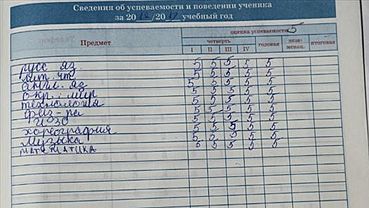 Сведения об успеваемости и поведении ученика
за 20 /20 учебный год
Предмет
оценка успеваемости
четверть годовая экза-мен. итоговая
I II III IV
русс яз 5 5 5 5 5
лит. чт 5 5 5 5 5
англ. яз 5 5 5 5 5
окр. мир 5 5 5 5 5
технология 5 5 5 5 5
физ-ра 5 5 5 5 5
ИЗО 5 5 5 5 5
хореография 5 5 5 5 5
Музыка 5 5 5 5 5
математика 5 5 5 5 5